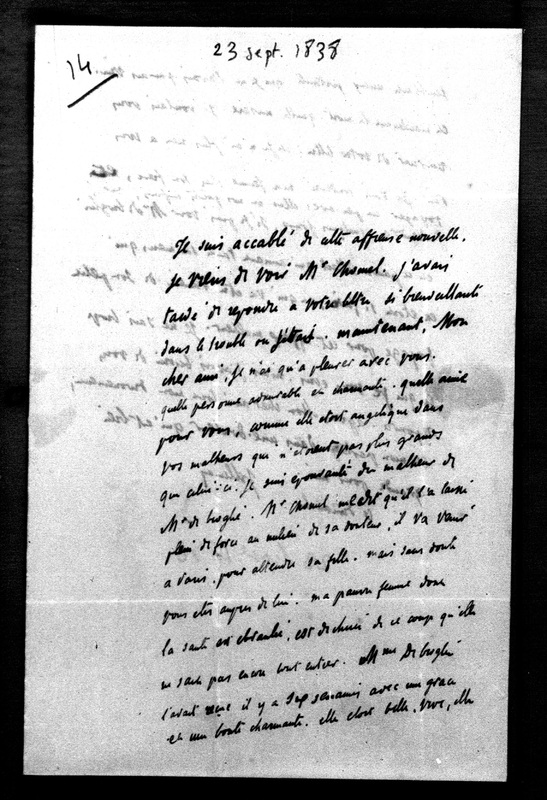 23 sept. 1838
14
Je suis accablé de cette affreuse nouvelle.
je viens de voir Mr Chomel. j'avais
tardé de repondre a votre lettre si bienveillante
dans le trouble ou j'étais. maintenant, Mon
cher ami, je n'ai qu'a pleurer avec vous.
quelle personne admirable et charmante. quelle amie
pour vous, comme elle etoit angelique dans
vos malheurs qui n'etoient pas plus grands
que celui-ci. je suis epouvanté du malheur de
Mr de broglie. Mr Chomel me dit qu'il l'a laissé
plein de force au milieu de sa douleur, il va venir
a Paris, pour attendre sa fille. mais sans doute
vous etes aupres de lui. ma pauvre femme dont
la santé est ebranlée, est dechirée de ce coup qu'elle
ne sait pas encore tout entier. Mme De broglie
l'avait il y a six semaines avec une grace
et une bonté charmante. elle etoit belle, vive, elle